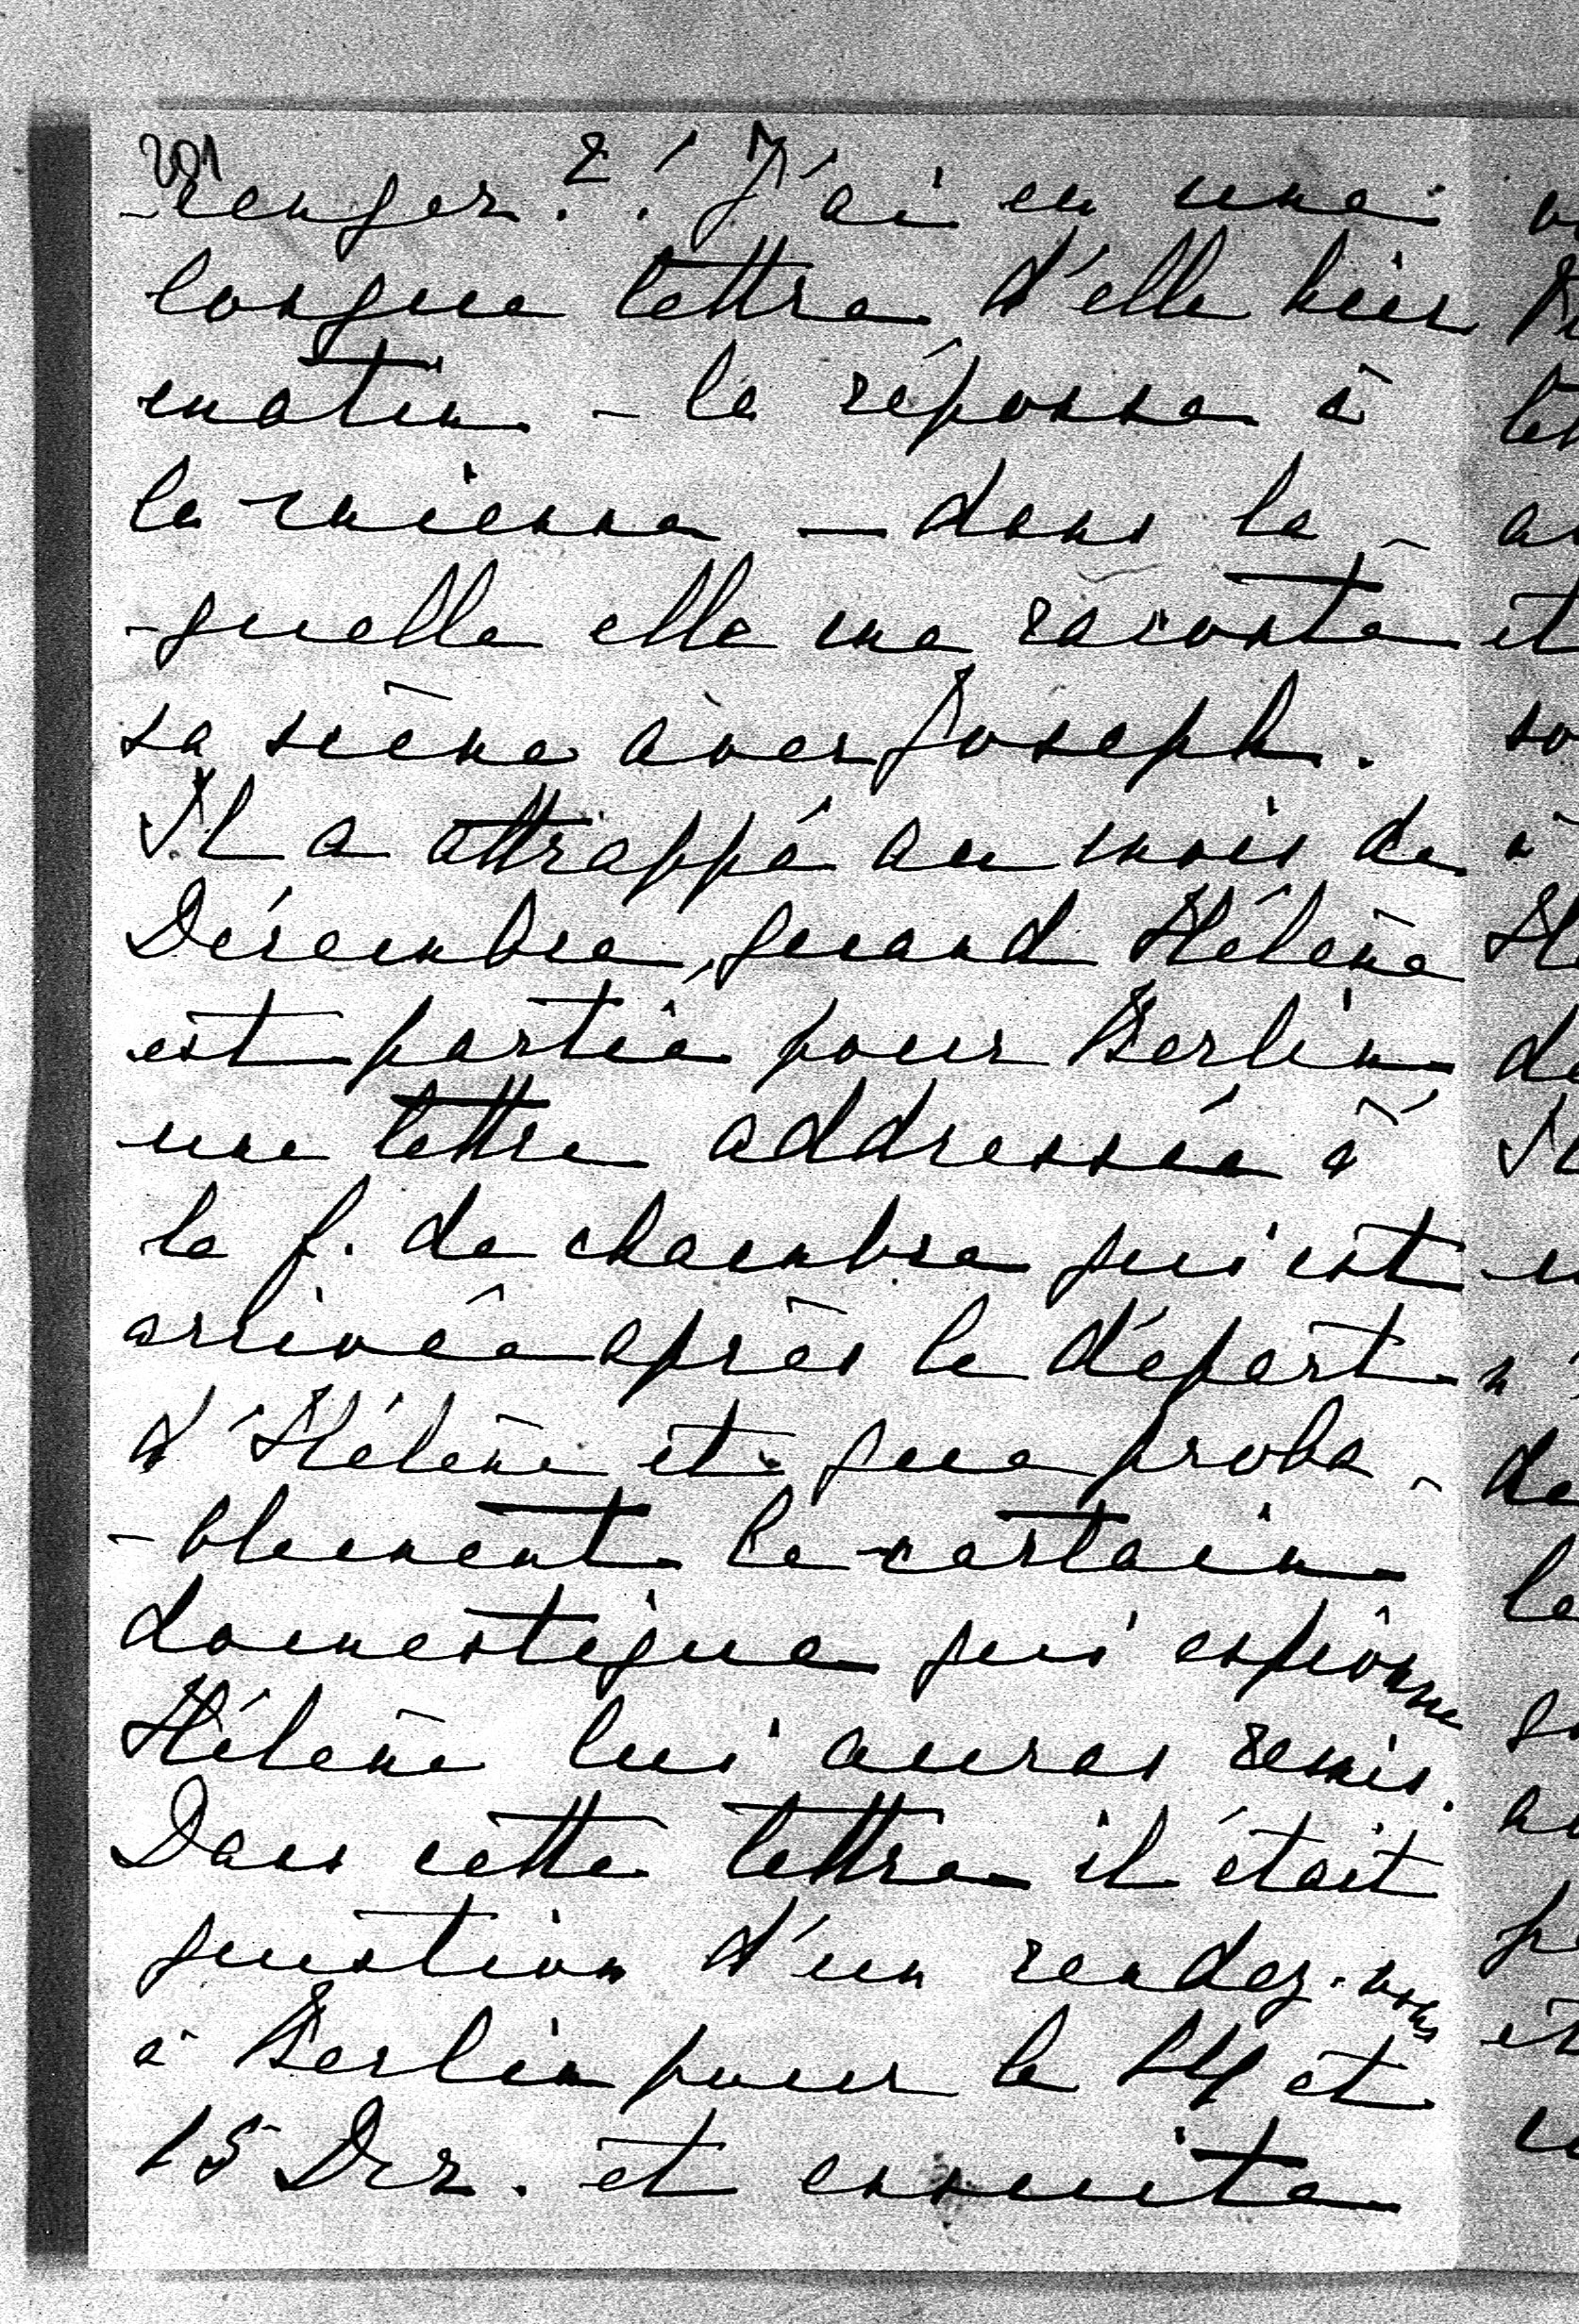 201
-renger.?! J'ai eu une
longue lettre d'elle hier
matin - la réponse à
la mienne — dans la-
-quelle elle me raconte
sa scène avec Joseph.
Il a attrappé au mois de
Décembre, quand Hélène
est partie pour Berlin,
une lettre addressée à
la f. de chambre qui est
arrivée après le départ
d'Hélène et que proba-
-blement le certain
domestique qui espionne
Hélène lui auras remis.
Dans cette lettre il était
question d'un rendez-vous
à Berlin pour le 14 et
15 Dez. et ensuite